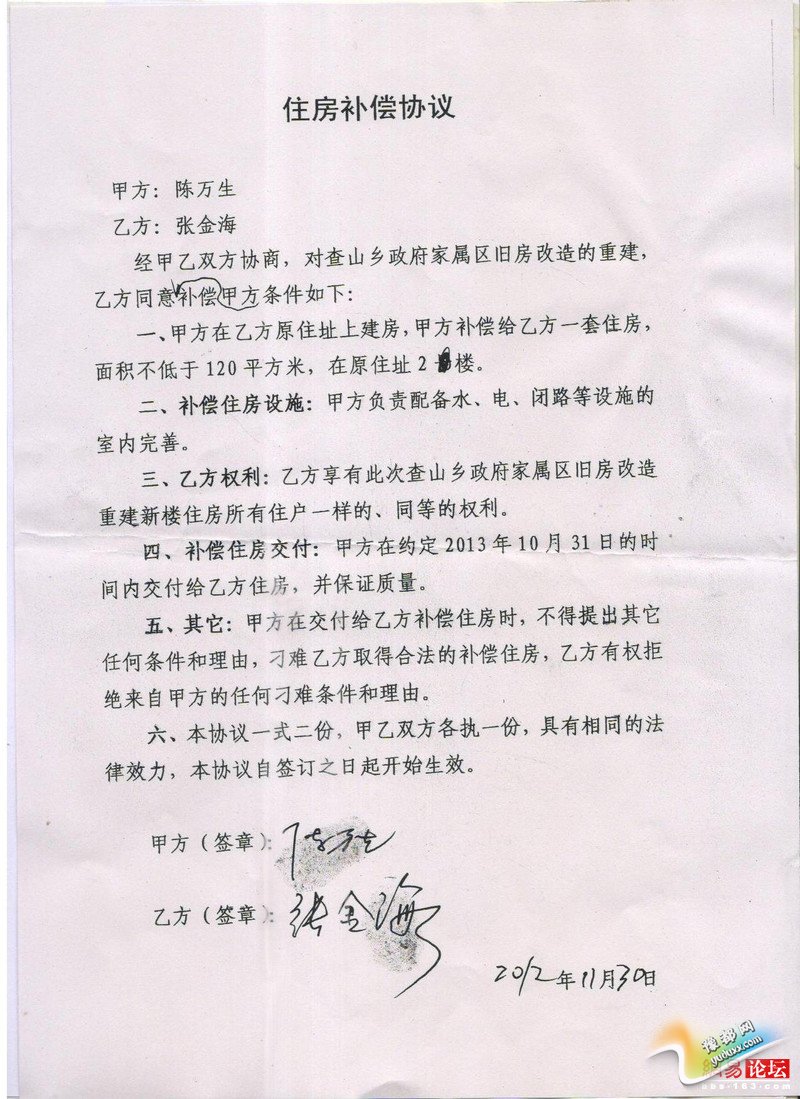 住房补偿协议
甲方：陈万生
乙方：张金海
经甲乙双方协商，对查山乡政府家属区旧房改造的重建，
乙方同意补偿甲方条件如下：
一、甲方在乙方原住址上建房，甲方补偿给乙方一套住房，
面积不低于120平方米，在原住址2楼。
二、补偿住房设施：甲方负责配备水、电、闭路等设施的
室内完善。
三、乙方权利：乙方享有此次查山乡政府家属区旧房改造
重建新楼住房所有住户一样的、同等的权利。
四、补偿住房交付：甲方在约定2013年10月31日的时
间内交付给乙方住房，并保证质量。
五、其它：甲方在交付给乙方补偿住房时，不得提出其它
任何条件和理由，刁难乙方取得合法的补偿住房，乙方有权拒
绝来自甲方的任何刁难条件和理由。
六、本协议一式二份，甲乙双方各执一份，具有相同的法
律效力，本协议自签订之日起开始生效。
甲方（签章）：陈万生
乙方（签章）：张金海
2012年11月30日
豫都网
yuduxx.com
易论坛
bbs.163.com